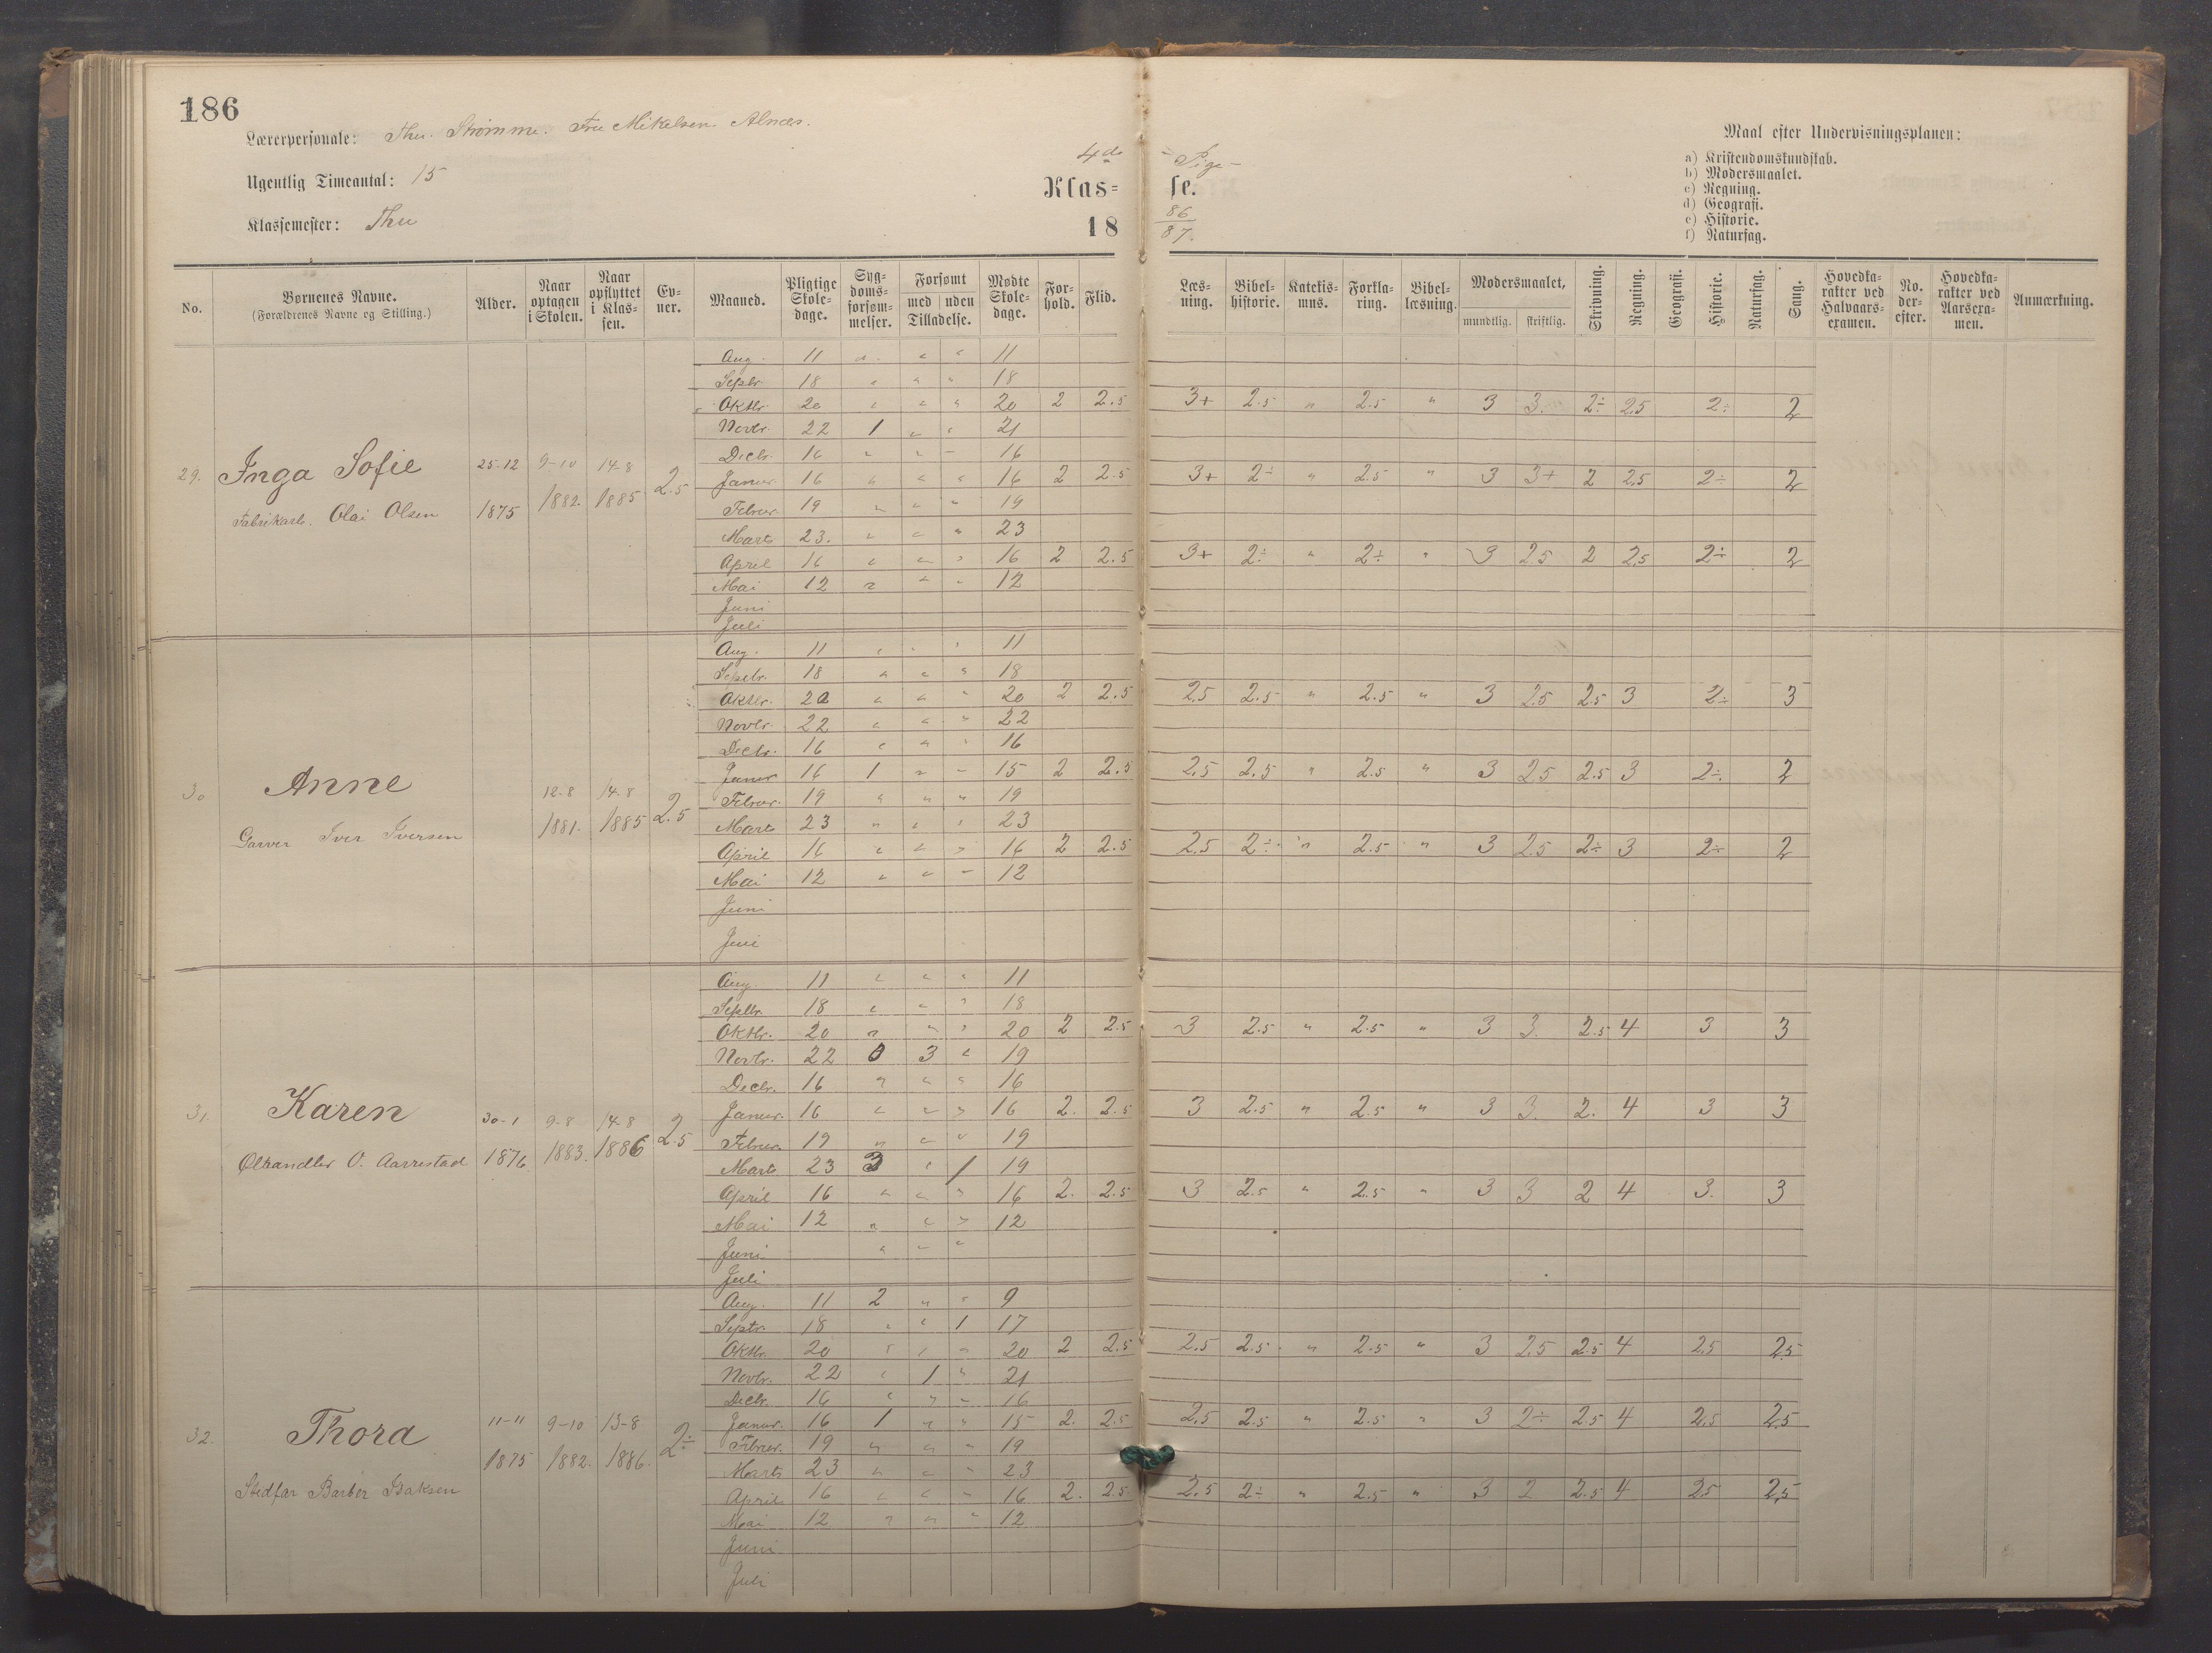 186
Lærerpersonale: Thu. Strømme. Fru Mikelsen. Alnæs.
Ugentlig Timeantal: 15
Klassemester: Thu
4de Pige-
Klasse.
1886/87.
Maal efter Undervisningsplanen:
a) Kristendomskundskab.
b) Modersmaalet.
c) Regning.
d) Geografi.
e) Historie.
f) Naturfag.
No. | Børnenes Navne. (Forældrenes Navne og Stilling.) | Alder. | Naar optagen i Skolen. | Naar opflyttet i Klassen. | Evner. | Maaned. | Pligtige Skoledage. | Sygdomsforsømmelser. | Forsømt med Tilladelse. | uden | Mødte Skoledage. | Forhold. | Flid. | Læsning. | Bibelhistorie. | Katekismus. | Forklaring. | Bibellæsning. | Modersmaalet, mundtlig. | skriftlig. | Skrivning. | Regning. | Geografi. | Historie. | Naturfag. | Sang. | Hovedkarakter ved Halvaarsexamen. | No. derefter. | Hovedkarakter ved Aarsexamen. | Anmærkning.
29. Inga Sofie
Fabrikarb. Olai Olsen
25-12 1875 | 9-10 1882. | 14-8 1885. | 2.5
Aug. 11 " " " 11
Septbr. 18 " " " 18
Oktbr. 20 " " " 20 2 2.5 3+ 2.5 " 2.5 " 3 3. 2÷ 2.5 2÷ 2
Novbr. 22 1 " " 21
Decbr. 16 " " " 16
Januar. 16 " " " 16 2 2.5 3+ 2÷ " 2.5 " 3 3+ 2 2.5 2÷ 2
Februar. 19 " " " 19
Marts 23. " " " 23
April 16 " " " 16 2 2.5 3+ 2÷ " 2÷ " 3 2.5 2 2.5 2÷ 2
Mai 12 " " " 12
Juni
Juli
30 Anne
Garver Iver Iversen
12-8 1881. | 14-8 1885 | 2.5
Aug. 11 " " " 11
Septbr. 18 " " " 18
Oktbr. 20 " " " 20 2 2.5 2.5 2.5 " 2.5 " 3 2.5 2.5 3 2÷ 3
Novbr. 22 " " " 22
Decbr. 16 " " " 16
Januar 16 1 " " 15 2 2.5 2.5 2.5 " 2.5 " 3 2.5 2.5 3 2÷. 2
Februar. 19 " " " 19
Marts 23 " " " 23
April 16 " " " 16 2 2.5 2.5 2÷ " 2.5 " 3 2.5 2÷ 3 2÷ 2
Mai 12 " " " 12
Juni
Juli
31. Karen
Ølhandler O. Aarrestad
30-1 1876. | 9-8 1883. | 14-8 1886 | 2.5
Aug. 11 " " " 11
Septbr. 18 " " " 18
Oktbr. 20 " " " 20 2 2.5 3 2.5 " 2.5 " 3 3. 2.5 4 3 3
Novbr. 22 0 3 " 19
Decbr. 16 " " " 16
Januar. 16 " " " 16 2. 2.5 3 2.5 " 2.5 " 3 3. 2. 4 3 3
Februar. 19 " " " 19
Marts 23 3 " 1 19
April 16 " " " 16 2. 2.5 3 2.5 " 2.5 " 3 3 2 4 3. 3
Mai 12 " " " 12
Juni " " "
Juli
32. Thora
Stedfar Barber Isaksen
11-11 1875 | 9-10 1882. | 13-8 1886. | 2÷
Aug. 11 2 " " 9
Septr. 18 " " 1 17
Oktbr. 20 " " " 20 2 2.5 2.5 2.5 " 2.5 " 3 2.5 2.5 4 2.5 2.5
Novbr. 22 " 1 " 21
Decbr. 16 " " " 16
Januar. 16 1 " " 15 2. 2.5 2.5 2.5 " 2.5 " 3 2÷ 2.5 4 2.5 2.5
Februar. 19 " " " 19
Marts 23 " " " 23
April 16 " " " 16 2. 2.5 2.5 2÷ " 2.5 " 3 2 2.5 4 2.5 2.5
Mai 12 " " " 12
Juni
Juli